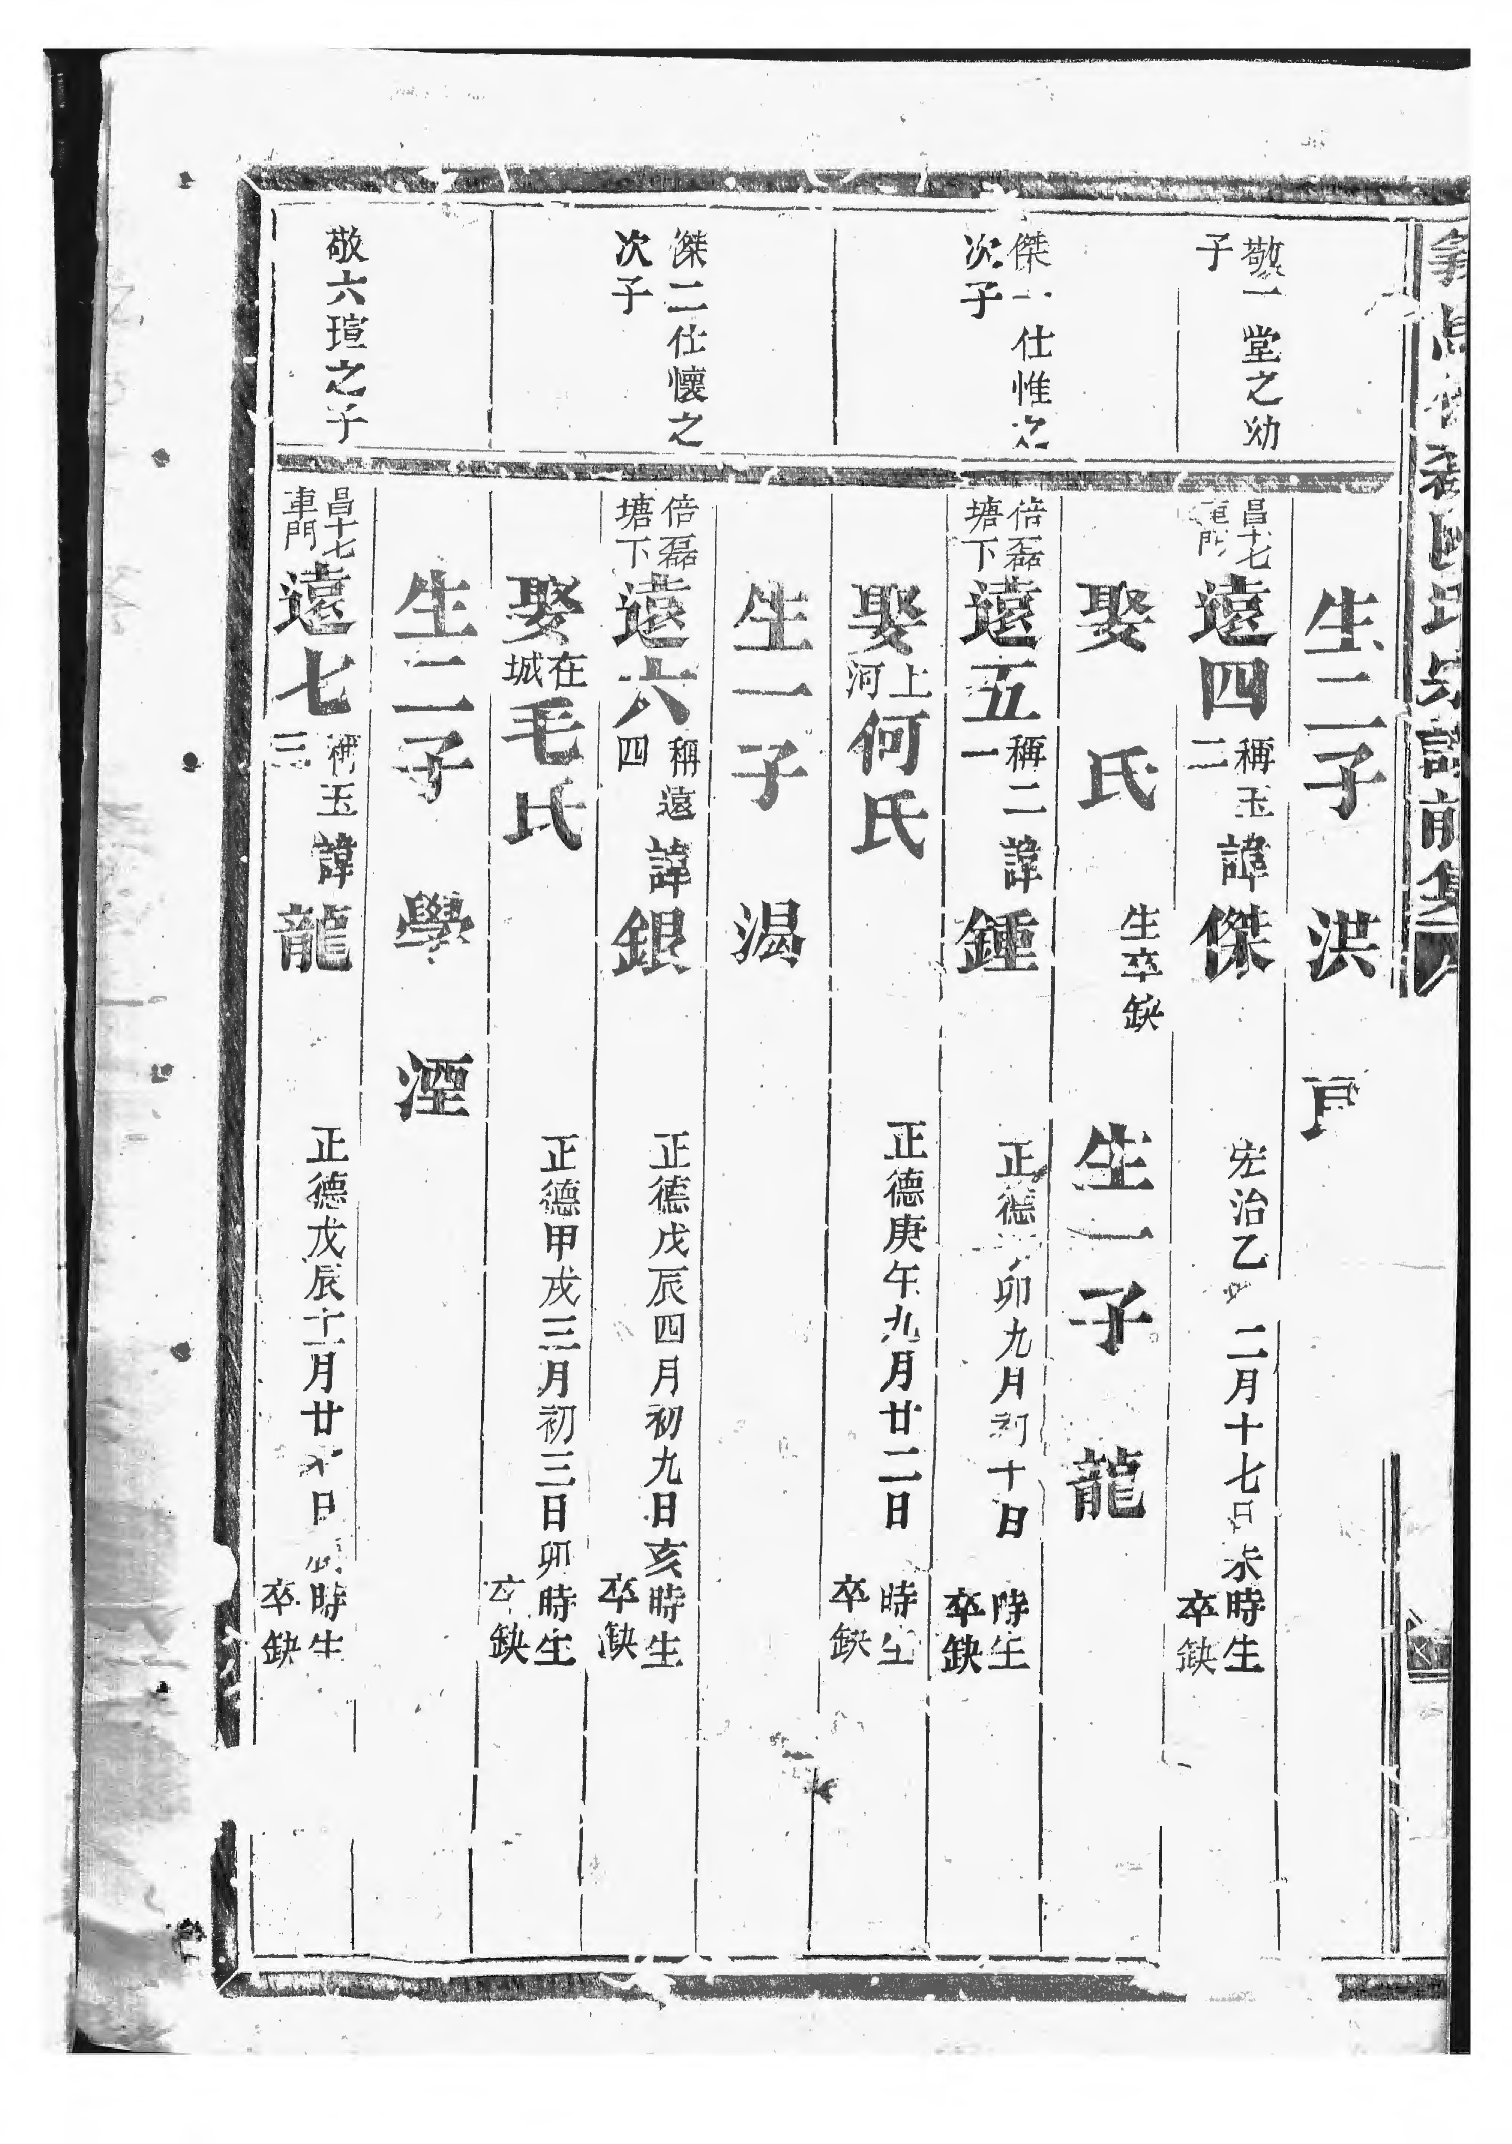 生二子 洪
敬一堂之幼子
昌十七 遠四 稱玉二 諱傑 宏治乙 二月十七日未時生 卒缺
娶 氏 生卒缺 生一子 龍
傑一仕惟之次子
倍磊塘下 遠五 稱二一 諱鍾 正德 卯九月初十日 時生 卒缺
娶上河何氏 正德庚午九月廿二日 時生 卒缺
生一子 渴
傑二仕懷之次子
倍磊塘下 遠六 稱遠四 諱銀 正德戊辰四月初九日亥時生 卒缺
娶在城毛氏 正德甲戌三月初三日卯時生 卒缺
生二子 學 湮
敬六瑄之子
昌十七車門 遠七 稱玉三 諱龍 正德戊辰十一月廿 日 時生 卒缺